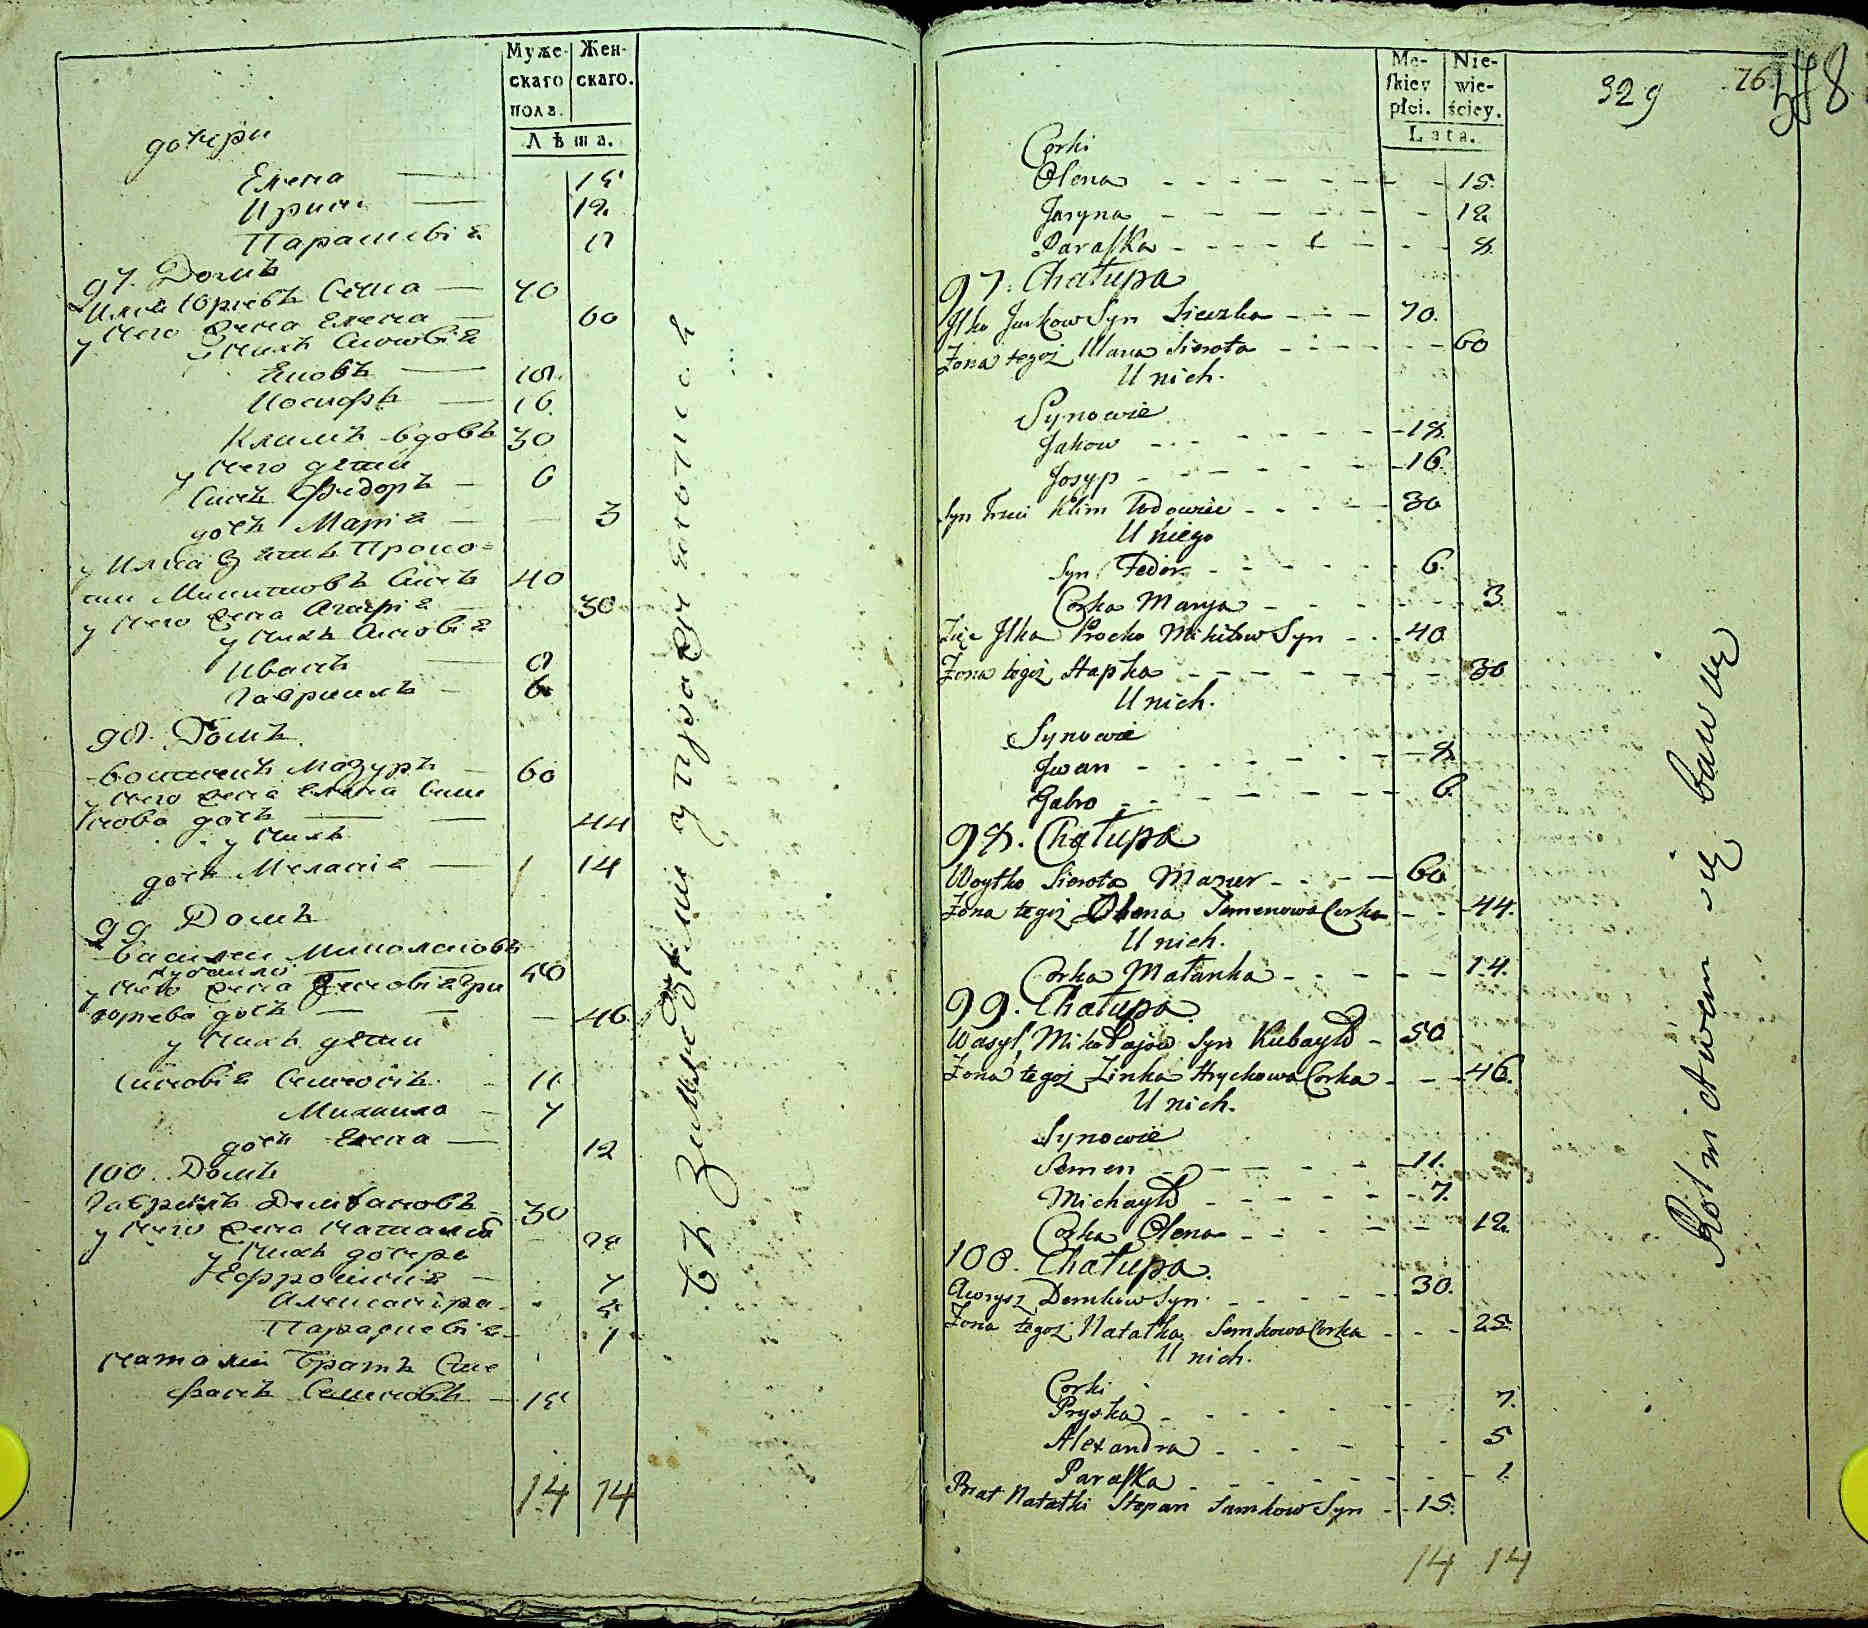 Муже-
скаго
пола.
Жен-
скаго.
Лѣта.
дочери
Елена — 15
Ирина — 12
Параскевіа 8
97. Домъ
Илиа Юрьевъ — 70
у него жена Елена — 60
у нихъ сыновіа
Яковъ — 18
Иосифъ — 16
Климъ вдовъ 30
у него дети
сынъ Федоръ — 6
дочь Маріа — 3
у Илиа зять Проко=
пи Микитовъ сынъ 40
у него жена Агафіа — 30
у нихъ сыновіа
Иванъ — 8
Гавриилъ — 6
98. Домъ
Мазуръ — 60
у него жена Елена Симе
нова дочь — 44
у нихъ
дочь Меланіа — 14
99 Домъ
Василеи Миколаовъ
Кубаило 50
у него жена Зиновіа Гри
горьева дочь — 46
у нихъ дети
сыновіа Семионъ — 11
Михаило — 7
дочь Елена — 12
100. Домъ
Гаврыилъ Демяновъ — 30
у него жена Наталиа 25
у нихъ дочери
Ефросиниа — 7
Александра — 5
Параскевіа — 1
Наталии братъ Сте
фанъ Семеновъ — 15
14 14
въ земледелии упражняются
Mę-
skiey
płci.
Nie-
wie-
ściey.
Lata.
329
76
548
Corki
Olena - - - 15.
Jaryna - - - 12
Paraska - - - 8.
97. Chałupa
Ilko Jurkow Syn Sieczka - - - 70.
Zona tegoż Maria Sierota - - - 60
U nich.
Synowie
Jakow - - - 18.
Josyp - - - 16.
Syn Trzeci Klim Wdowiec - - - 30
U niego
Syn Fedor - - - 6.
Corka Marya - - - 3.
Zięć Ilka Procko Mikitow Syn - - 40.
Zona tegoż Hapka - - - 30
U nich.
Synowie
Jwan - - - 8.
Gabro - - - 6.
98. Chałupa
Woytko Sierota Mazur - - - 60
Zona tegoż Olena Semenowa Corka - - 44.
U nich.
Corka Matanka - - - 14.
99. Chałupa
Wasyl Mikołajow Syn Kubayło - 50
Zona tegoż Zinka Hryckowa Corka - - - 46.
U nich.
Synowie
Semen - - - 11.
Michayło - - - 7.
Corka Olena - - - 12.
100. Chałupa.
Demkow Syn - - - 30.
Zona tegoż Natałka Semkowa Corka - - - 25.
U nich.
Corki
Pryska - - - 7.
Alexandra - - - 5
Paraska - - - 1.
Brat Natałki Stepan Samkow Syn - - 15.
14 14
Rolnictwem się bawią